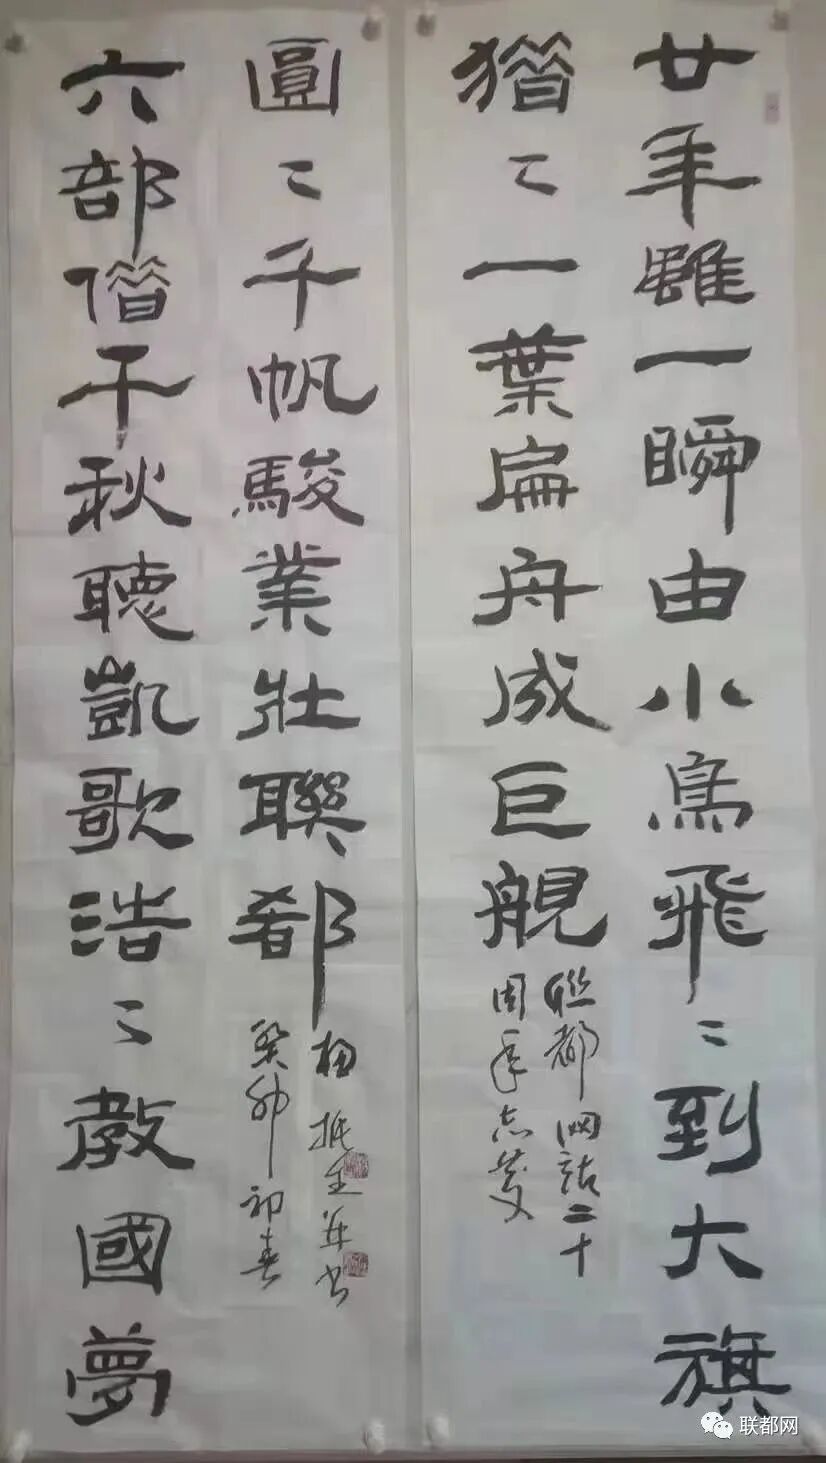 廿年雖一瞬由小鳥飛〻到大旗
猎〻一葉扁舟成巨舰
聯都网站二十
周年志慶
六部借千秋聽凱歌浩〻教國夢
圓〻千帆駿業壯聯都
癸卯初春
并书
联都网